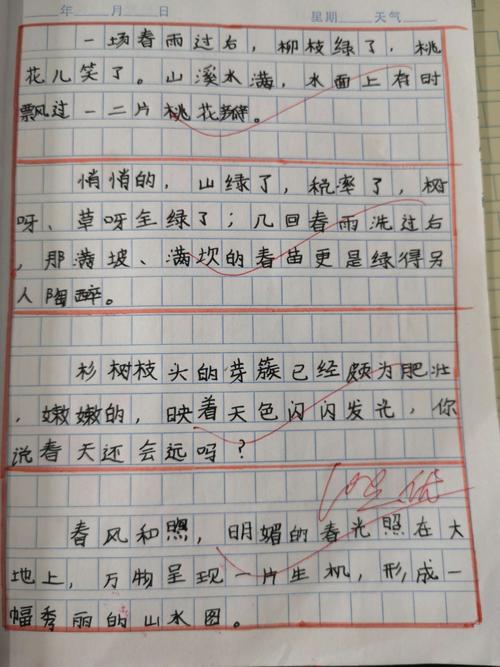 年 月 日 星期 天气
一场春雨过右，柳枝绿了，桃
花儿笑了。山溪水满，水面上有时
飘过一二片桃花瓣。
悄悄的，山绿了，税率了，树
呀、草呀全绿了；几回春雨洗过右
，那满坡、满坎的春苗更是绿得另
人陶醉。
杉树枝头的芽簇已经颇为肥壮
，嫩嫩的，映着天色闪闪发光，你
说春天还会远吗？
春风和煦，明媚的春光照在大
地上，万物呈现一片生机，形成一
幅秀丽的山水图。